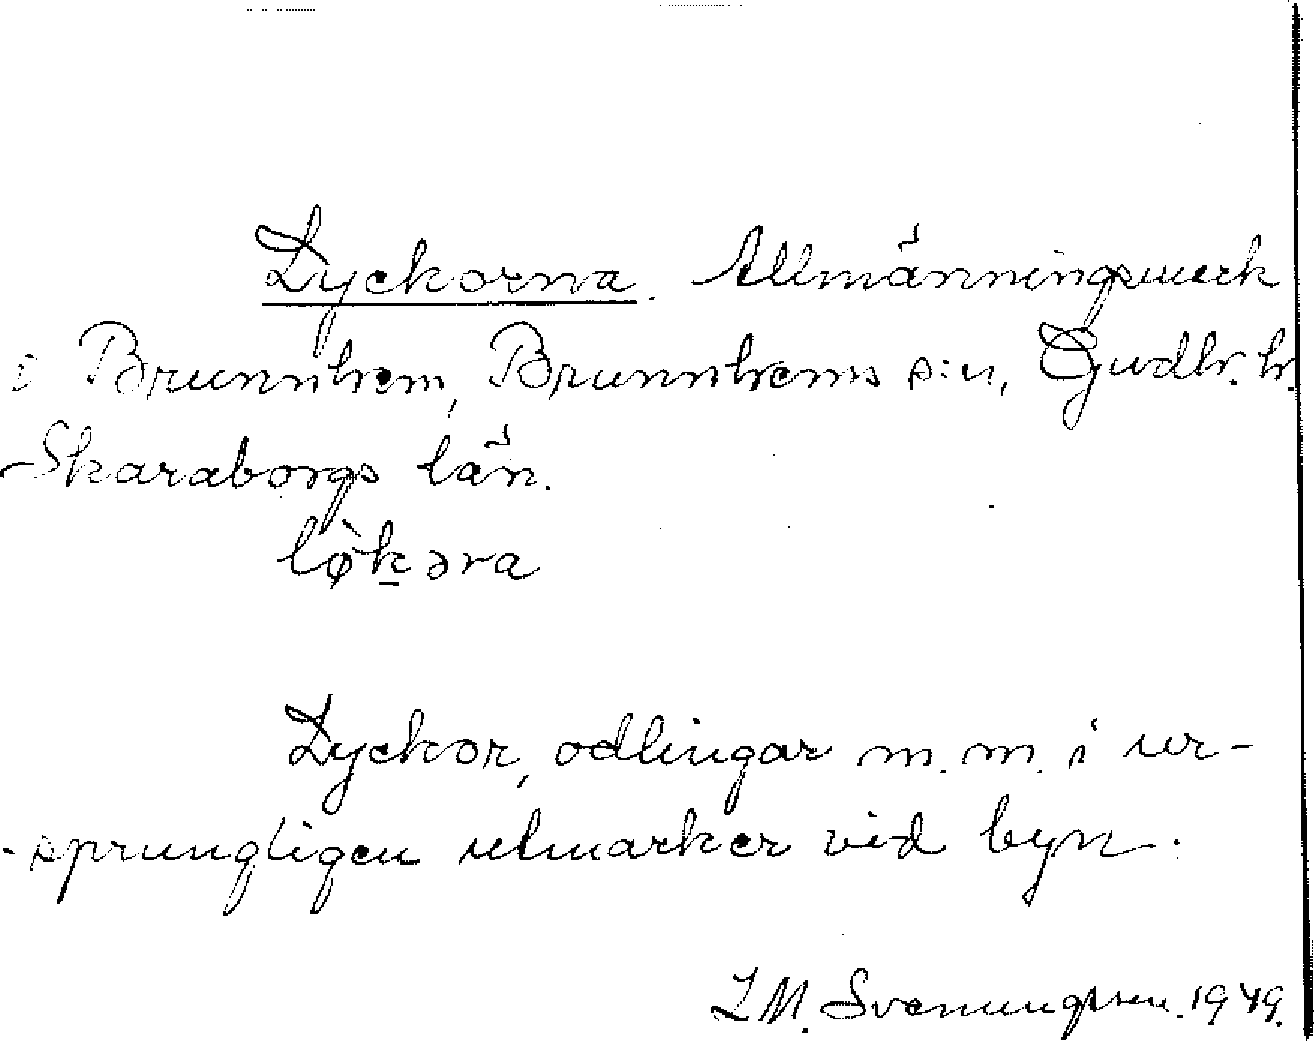 Lyckorna. Allmänningsmark
i Brunnhem, Brunnhems s:n, Gudh. h.
Skaraborgs län.
lø̀kəra
Lyckor, odlingar m.m. i ur-
sprungligen utmarker vid byn.
L M. Svenungsson. 1949.